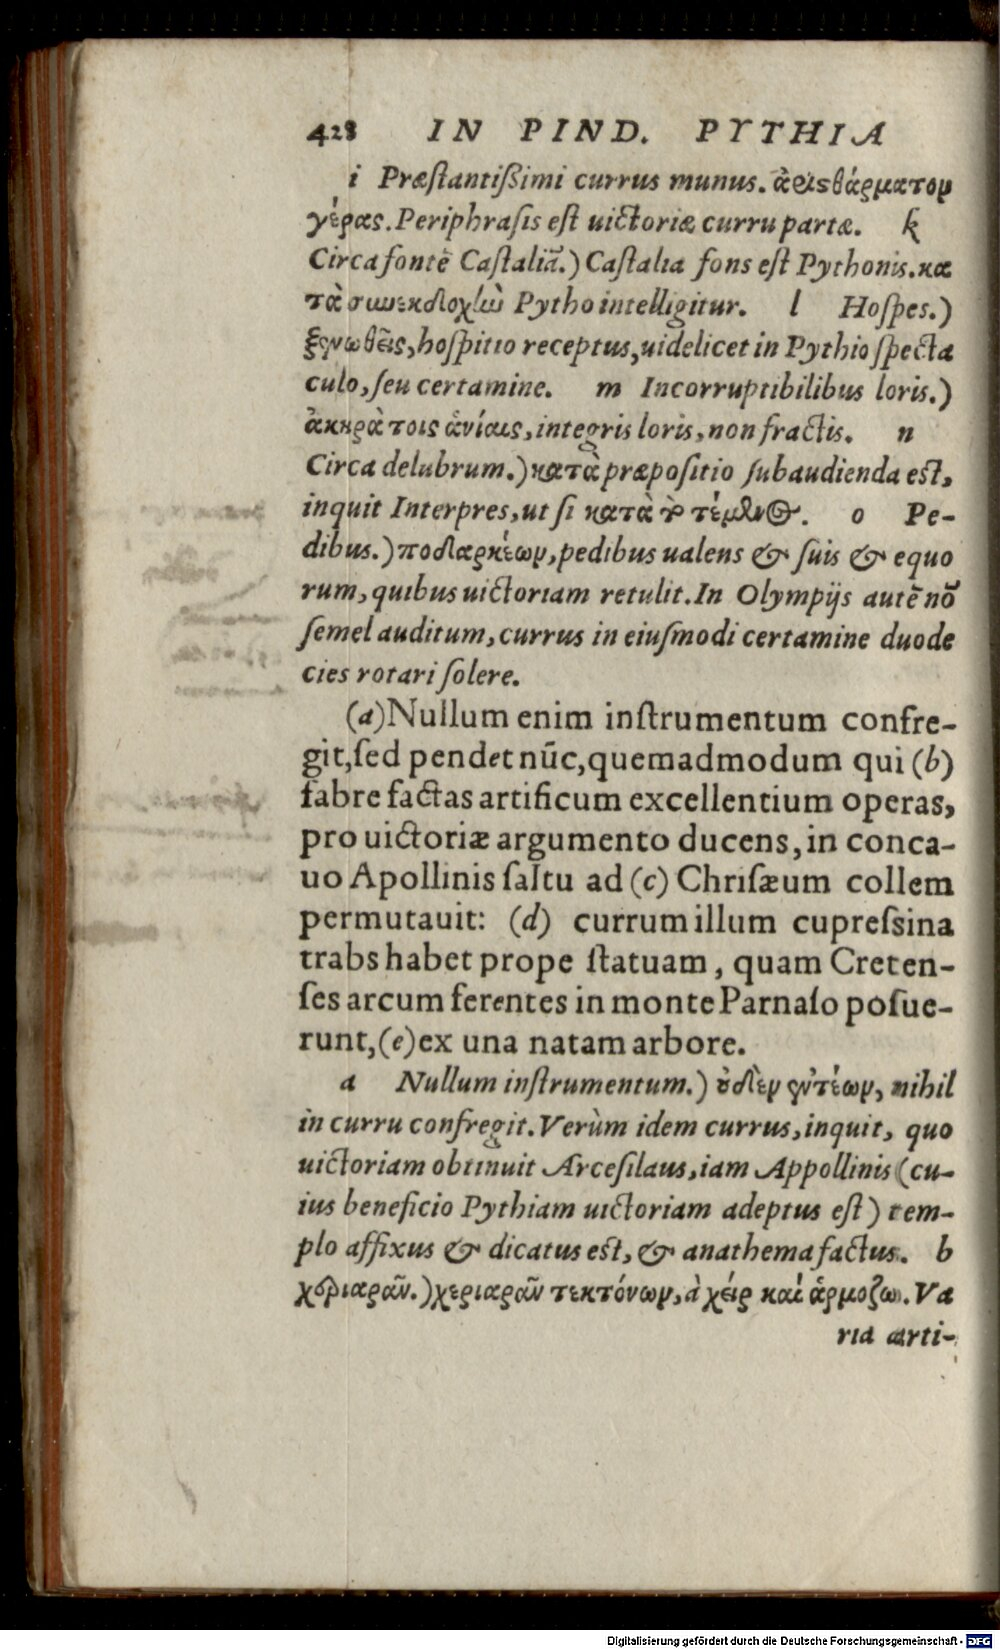 428 IN PIND. PYTHIA
i Præſtantißimi currus munus. ἀρισθάρματον
γέρας. Periphraſis eſt uictoriæ curru partæ. k
Circa fontē Caſtaliā.) Caſtalia fons eſt Pythonis. κα
τὰ συνεκδοχὴν Pytho intelligitur. l Hoſpes.)
ξενωθεὶς, hoſpitio receptus, uidelicet in Pythio ſpecta
culo, ſeu certamine. m Incorruptibilibus loris.)
ἀκηράτοις ἁνίαις, integris loris, non fractis. n
Circa delubrum.) κατὰ præpoſitio ſubaudienda eſt,
inquit Interpres, ut ſi κατὰ τὸ τέμενος. o Pe-
dibus.) ποδαρκέων, pedibus ualens & ſuis & equo
rum, quibus uictoriam retulit. In Olympijs autē nō
ſemel auditum, currus in eiuſmodi certamine duode
cies rotari ſolere.
(a) Nullum enim inſtrumentum confre-
git, ſed pendet nūc, quemadmodum qui (b)
fabre factas artificum excellentium operas,
pro uictoriæ argumento ducens, in conca-
uo Apollinis ſaltu ad (c) Chriſæum collem
permutauit: (d) currum illum cupreſsina
trabs habet prope ſtatuam, quam Creten-
ſes arcum ferentes in monte Parnaſo poſue-
runt, (e) ex una natam arbore.
a Nullum inſtrumentum.) οὐδὲν ἐντέων, nihil
in curru confregit. Verùm idem currus, inquit, quo
uictoriam obtinuit Arceſilaus, iam Appollinis (cu-
ius beneficio Pythiam uictoriam adeptus eſt) tem-
plo affixus & dicatus eſt, & anathema factus. b
χεριαρᾶν.) χεριαρᾶν τεκτόνων, ἀ χεὶρ καὶ ἁρμοζω. Va
ria arti-
Digitalisierung gefördert durch die Deutsche Forschungsgemeinschaft - DFG